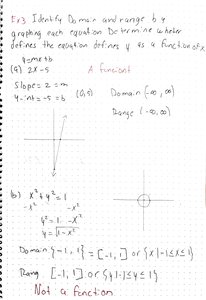 Ex3 Identify Domain and range by
graphing each equation Determine wheter
defines the equation defines y as a function of x
y=mx+b
(a) 2x-5 A funciont
Slope = 2 = m
y-int = -5 = b (0,5) Domain (-∞, ∞)
Range (-∞, ∞)
b) x² + y² = 1
-x² -x²
y² = 1 - x²
y = √1-x²
Domain {-1, 1} = [-1, 1] or {x|-1≤x≤1}
Rang [-1, 1] or {y|-1≤y≤1}
Not a function